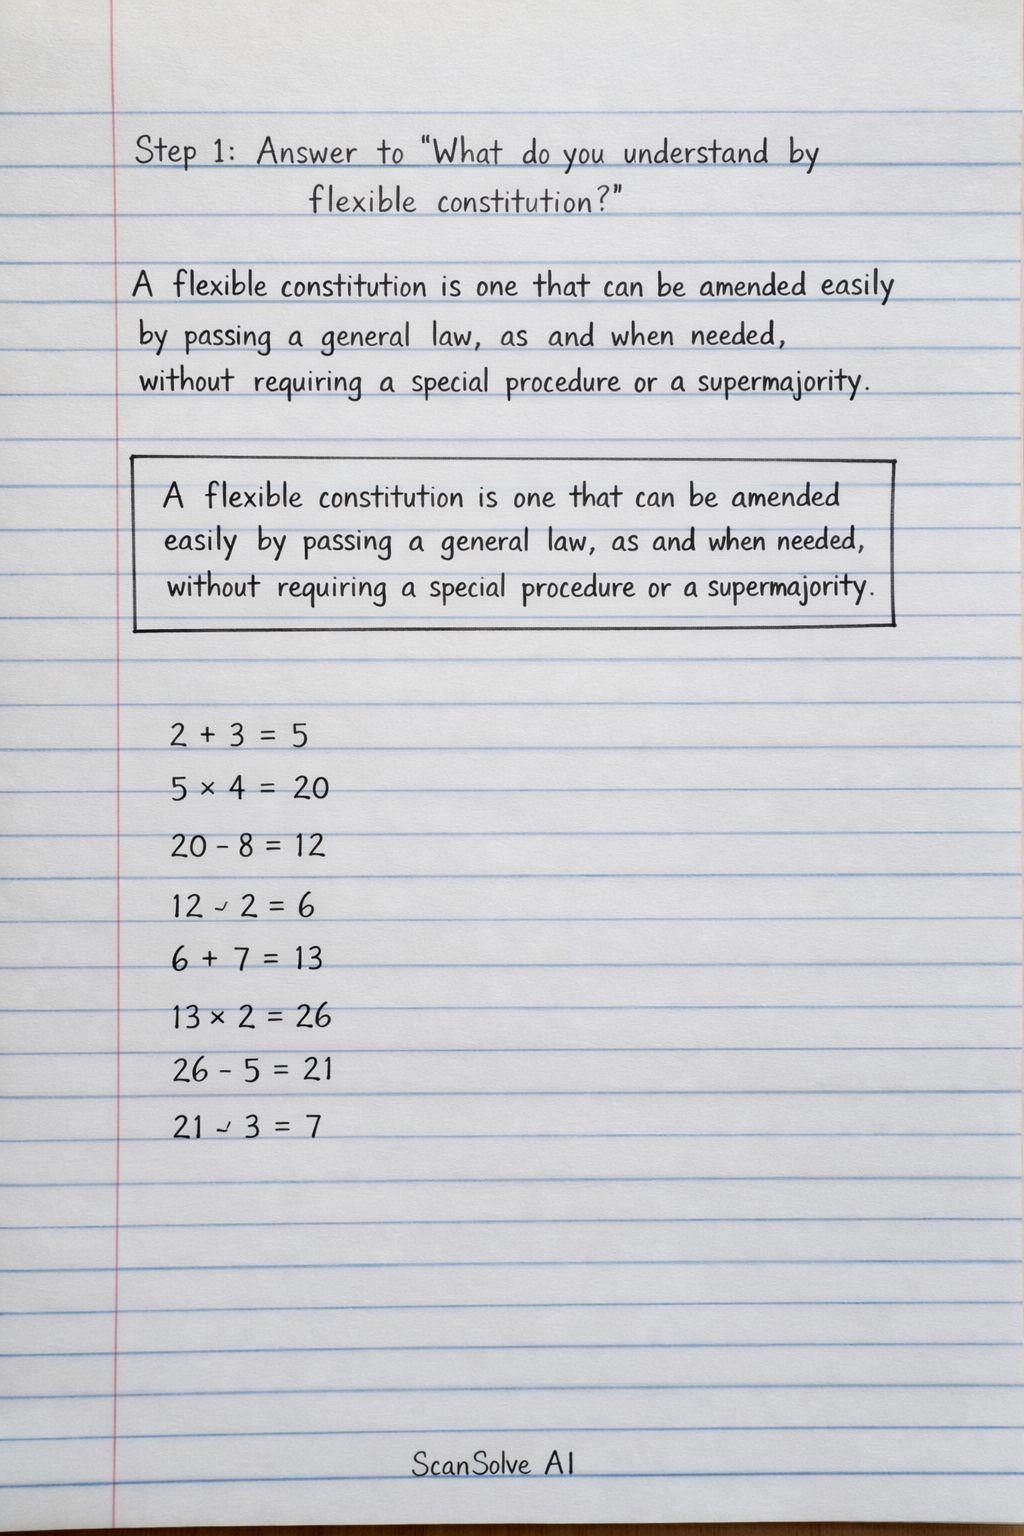 Step 1: Answer to "What do you understand by
flexible constitution?"
A flexible constitution is one that can be amended easily
by passing a general law, as and when needed,
without requiring a special procedure or a supermajority.
A flexible constitution is one that can be amended
easily by passing a general law, as and when needed,
without requiring a special procedure or a supermajority.
2 + 3 = 5
5 × 4 = 20
20 - 8 = 12
12 ~ 2 = 6
6 + 7 = 13
13 × 2 = 26
26 - 5 = 21
21 ~ 3 = 7
ScanSolve AI